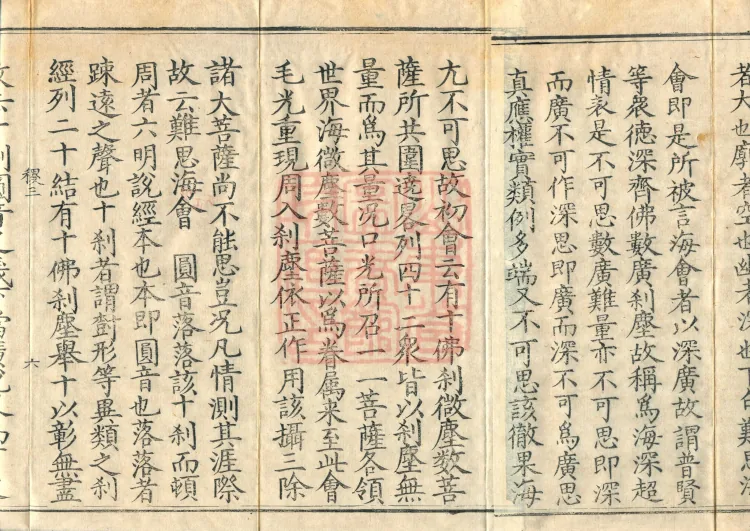 若大也廓者空也幽者深也下句難思海
會即是所被言海會者以深廣故謂普賢
等衆德深齊佛數廣刹塵故稱爲海深超
情表是不可思數廣難量亦不可思即深
而廣不可作深思即廣而深不可爲廣思
真應權實類例多端又不可思該徹果海
尤不可思故初會云有十佛刹微塵數菩
薩所共圍遶各列四十二衆皆以刹塵無
量而爲其量况口光所召一一菩薩各領
世界海微塵數菩薩以爲眷属来至此會
毛光重現周入刹塵依正作用該攝三際
諸大菩薩尚不能思豈况凡情測其涯際
故云難思海會　圓音落落該十刹而頓
周者六明說經本也本即圓音也落落者
踈遠之聲也十刹者謂𣗳形等異類之刹
經列二十結有十佛刹塵舉十以彰無盡
稷三　六